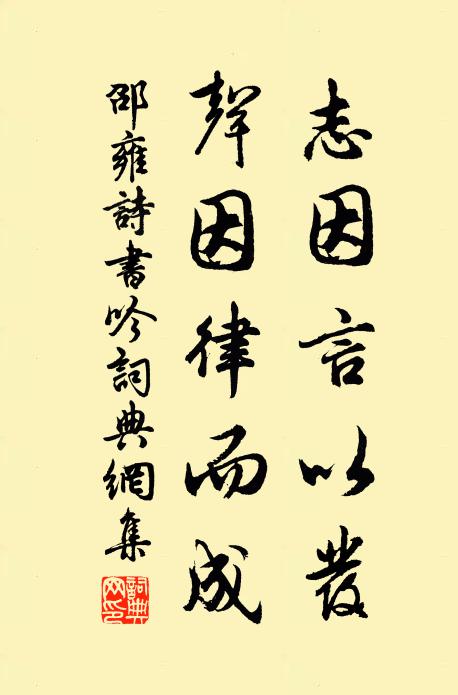 志因言以發
聲因律而成
邵雍詩書吟詞典網集
詞典網印